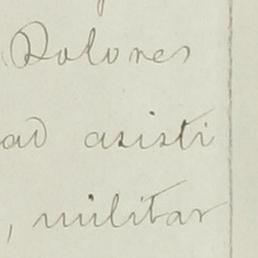 Dolores
ad asisti
, militar